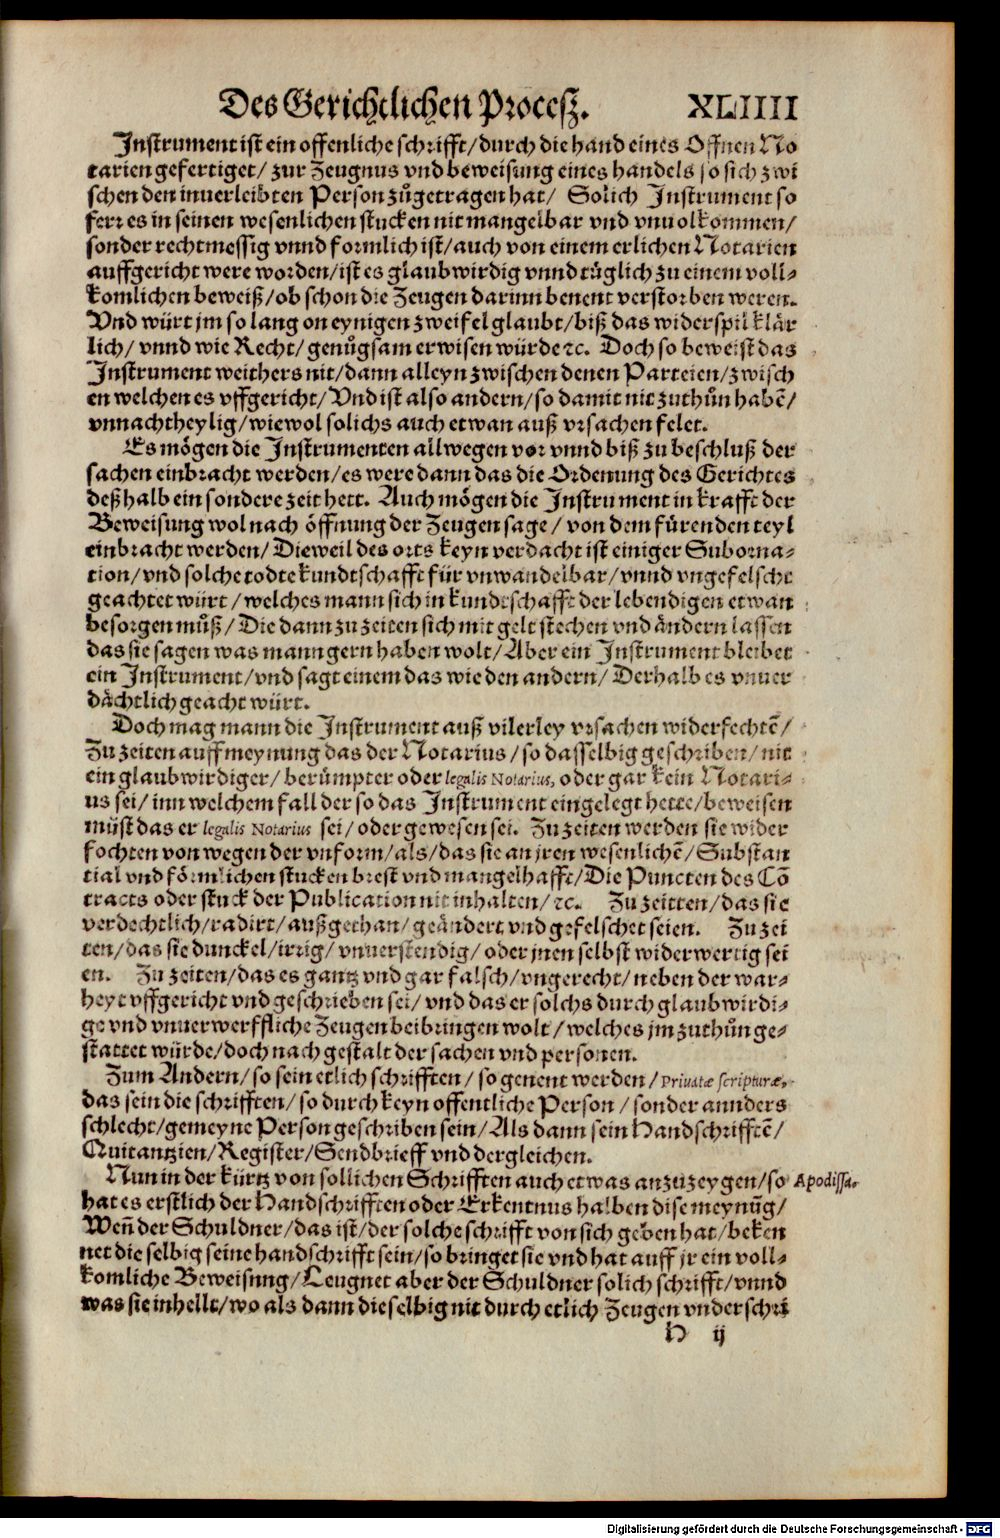 Des Gerichtlichen Procesz. XLIIII
Instrument ist ein offenliche schrifft/ durch die hand eines Offnen No
tarien gefertiget/ zur Zeugnus vnd beweisung eines handels so sich zwi
schen den inuerleibten Person zůgetragen hat/ Solich Instrument so
ferr es in seinen wesenlichen stucken nit mangelbar vnd vnuolkommen/
sonder rechtmessig vnnd formlich ist/ auch von einem erlichen Notarien
auffgericht were worden/ ist es glaubwirdig vnnd tüglich zu einem voll⸗
komlichen beweiß/ ob schon die Zeugen darinn benent verstorben weren.
Vnd würt jm so lang on eynigen zweifel glaubt/ biß das widerspil klär
lich/ vnnd wie Recht/ genůgsam erwisen würde ⁊c. Doch so beweist das
Instrument weithers nit/ dann alleyn zwischen denen Parteien/ zwisch
en welchen es vffgericht/ Vnd ist also andern/ so damit nit zuthůn habẽ/
vnnachtheylig/ wiewol solichs auch etwan auß vrsachen felet.
Es mögen die Instrumenten allwegen vor vnnd biß zu beschluß der
sachen einbracht werden/ es were dann das die Ordenung des Gerichtes
deßhalb ein sondere zeit hett. Auch mögen die Instrument in krafft der
Beweisung wol nach öffnung der Zeugen sage/ von dem fürenden teyl
einbracht werden/ Dieweil des orts keyn verdacht ist einiger Suborna⸗
tion/ vnd solche todte kundtschafft für vnwandelbar/ vnnd vngefelscht
geachtet würt/ welches mann sich in kundtschafft der lebendigen etwan
besorgen můß/ Die dann zu zeiten sich mit gelt stechen vnd ändern lassen
das sie sagen was mann gern haben wolt/ Aber ein Instrument bleibet
ein Instrument/ vnd sagt einem das wie den andern/ Derhalb es vnuer
dächtlich geacht würt.
Doch mag mann die Instrument auß vilerley vrsachen widerfechtẽ/
Zu zeiten auff meynung das der Notarius/ so dasselbig geschriben/ nit
ein glaubwirdiger/ berümpter oder legalis Notarius, oder gar kein Notari⸗
us sei/ inn welchem fall der so das Instrument eingelegt hette/ beweisen
müst das er legalis Notarius sei/ oder gewesen sei. Zu zeiten werden sie wider
fochten von wegen der vnform/ als/ das sie an jren wesenlichẽ/ Substan
tial vnd förmlichen stucken brest vnd mangelhafft/ Die Puncten des Cõ
tracts oder stuck der Publication nit inhalten/ ⁊c. Zu zeitten/ das sie
verdechtlich/ radirt/ außgethan/ geändert vnd gefelschet seien. Zu zei
ten/ das sie dunckel/ irrig/ vnuerstendig/ oder jnen selbst widerwertig sei
en. Zu zeiten/ das es gantz vnd gar falsch/ vngerecht/ neben der war⸗
heyt vffgericht vnd geschrieben sei/ vnd das er solchs durch glaubwirdi⸗
ge vnd vnuerwerffliche Zeugen beibringen wolt/ welches jm zuthůn ge⸗
stattet würde/ doch nach gestalt der sachen vnd personen.
Zum Andern/ so sein etlich schrifften/ so genent werden/ Priuatæ scripturæ,
das sein die schrifften/ so durch keyn offentliche Person/ sonder annders
schlecht/ gemeyne Person geschriben sein/ Als dann sein Handschrifftẽ/
Quitantzien/ Register/ Sendbrieff vnd dergleichen.
Nun in der kürtz von sollichen Schrifften auch etwas anzuzeygen/ so Apodissa.
hat es erstlich der Handschrifften oder Erkentnus halben dise meynũg/
Weñ der Schuldner/ das ist/ der solche schrifft von sich geben hat/ beken
net die selbig seine handschrifft sein/ so bringet sie vnd hat auff jr ein voll⸗
komliche Beweisung/ Leugnet aber der Schuldner solich schrifft/ vnnd
was sie inhellt/ wo als dann dieselbig nit durch etlich Zeugen vnderschri
H ij
Digitalisierung gefördert durch die Deutsche Forschungsgemeinschaft - DFG